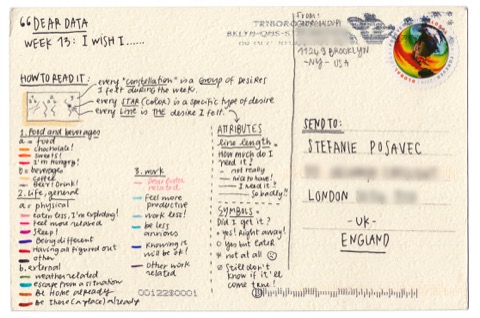 DEAR DATA
WEEK 13: I WISH I......
HOW TO READ IT:
every "constellation" is a GROUP of DESIRES
I felt during the week.
every STAR (color) is a specific type of desire
every LINE is THE desire I felt.
1. Food and beverages
a = food
chocholate!
sweets!
I'm hungry!
b = beverage
coffee
Beer! Drink!
2. Life, general
a = physical
eaten less, I'm exploding!
feel more relaxed
Sleep!
Being different
Having all figured out
other
b. external
weather related
escape from a situation
Be Home already
Be there (in a place) already
3. work
Dear Data
related.
feel more
productive
work less!
be less
anxious
knowing it
will be ok!
other work
related
ATTRIBUTES
line length.
How much do I
need it?
not really
nice to have!
I need it!
So badly!!
SYMBOLS.
Did I get it?
yes! Right away!
yes but later
not at all
Still don't
know if it'll
come true!
From:
11249 BROOKLYN
-NY- USA
SEND TO:
STEFANIE POSAVEC
LONDON
-UK-
ENGLAND